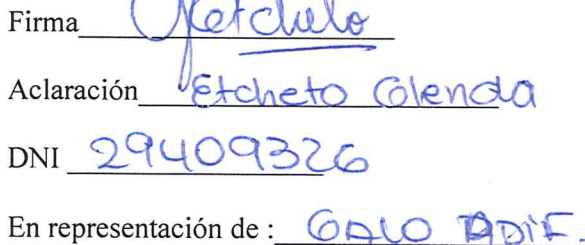 Firma Jetcheto
Aclaración Etcheto Glenda
DNI 29409326
En representación de : GALO ADIF.